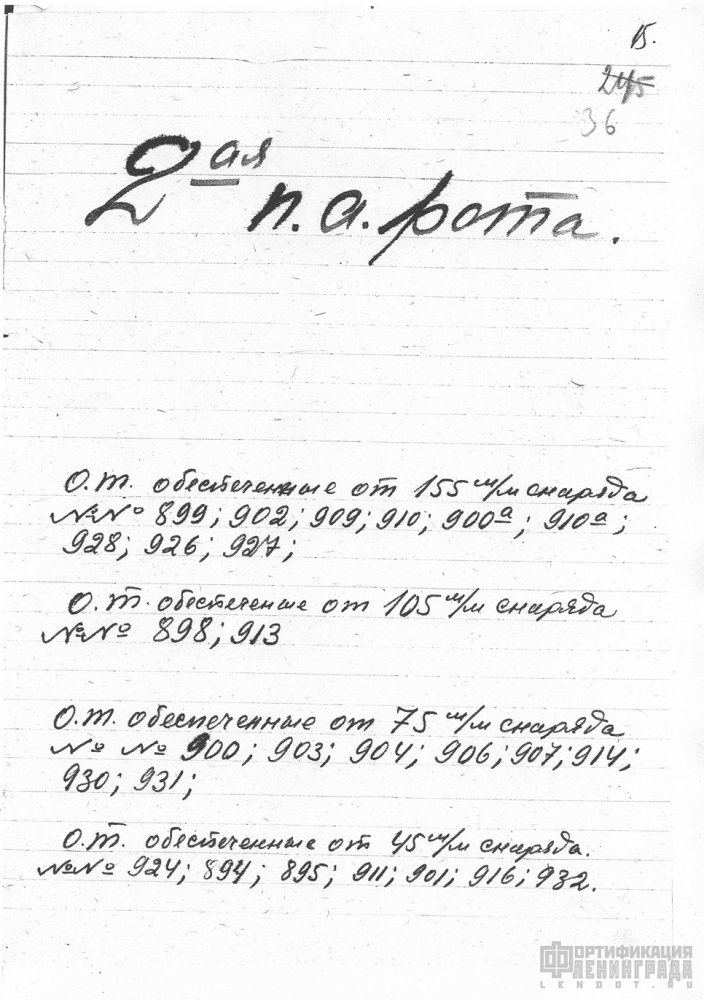 15.
245
36
2ая п.а. рота.
О.Т. обеспеченные от 155 м/м снаряда
№№ 899; 902; 909; 910; 900а; 910а;
928; 926; 927;
О.Т. обеспечение от 105 м/м снаряда
№№ 898; 913
О.Т. обеспеченные от 75 м/м снаряда
№ № 900; 903; 904; 906; 907; 914;
930; 931;
О.Т. обеспеченные от 45 м/м снаряда.
№№ 924; 894; 895; 911; 901; 916; 932.
ФОРТИФИКАЦИЯ
ЛЕНИНГРАДА
LENDOT.RU